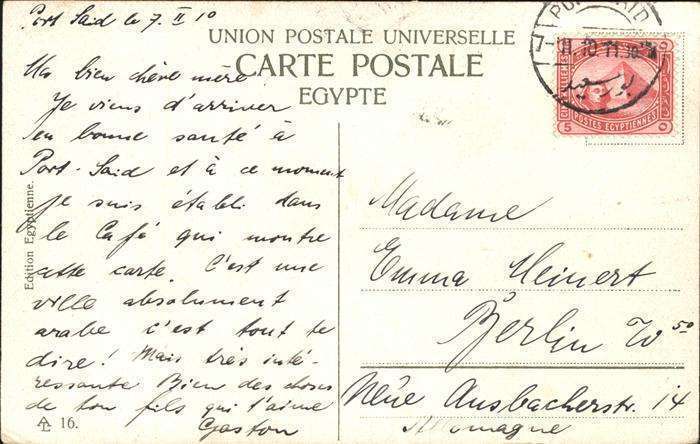 Port Said le 7. II 10
UNION POSTALE UNIVERSELLE
CARTE POSTALE
EGYPTE
Ma bien chère mère
Je viens d'arriver
en bonne santé à
Port-Said et à ce moment
je suis établi dans
le Café qui montre
cette carte. C'est une
ville absolument
arabe c'est tout te
dire! Mais très inté-
ressante Bien des choses
de ton fils qui t'aime
Gaston
Edition Egyptienne.
16.
PORT SAID
بورسعيد
POSTES EGYPTIENNES
5
5
Madame
Emma Meinert
Berlin W 50
Neue Ansbacherstr. 14
Allemagne